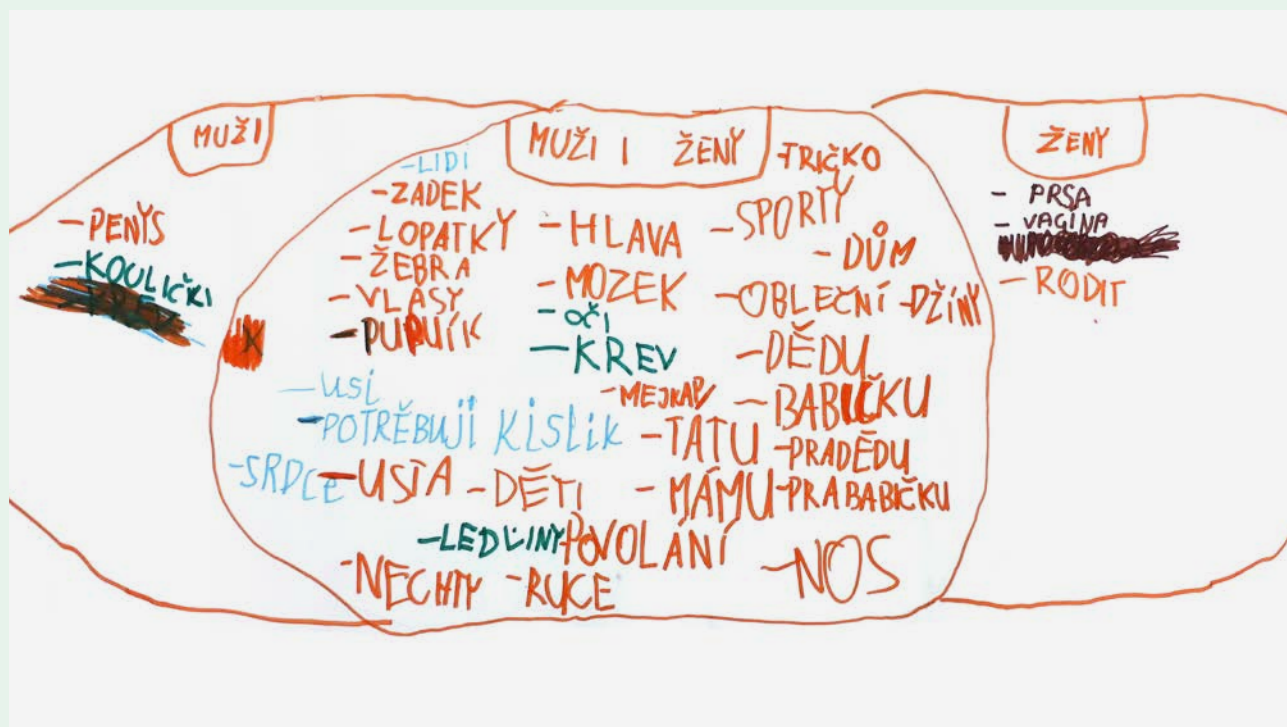 MUŽI
- PENYS
- KOULIČKI
MUŽI I ŽENY
- LIDI
- ZADEK
- LOPATKY
- ŽEBRA
- VLASY
- PUPUÍK
- USI
- POTRĚBUJÍ KISLIK
- SRDCe
- USTA
- DĚTI
- LEDVINY
- NECHTY
- RUCE
- HLAVA
- MOZEK
- OČI
- KREV
- MEJKAP
- TATU
- MÁMU
- POVOLÁNÍ
- TRIČKO
- SPORTY
- DŮM
- OBLEČNÍ
- DŽÍNY
- DĚDU
- BABIČKU
- PRADĚDU
- PRABABIČKU
- NOS
ŽENY
- PRSA
- VAGINA
- RODIT